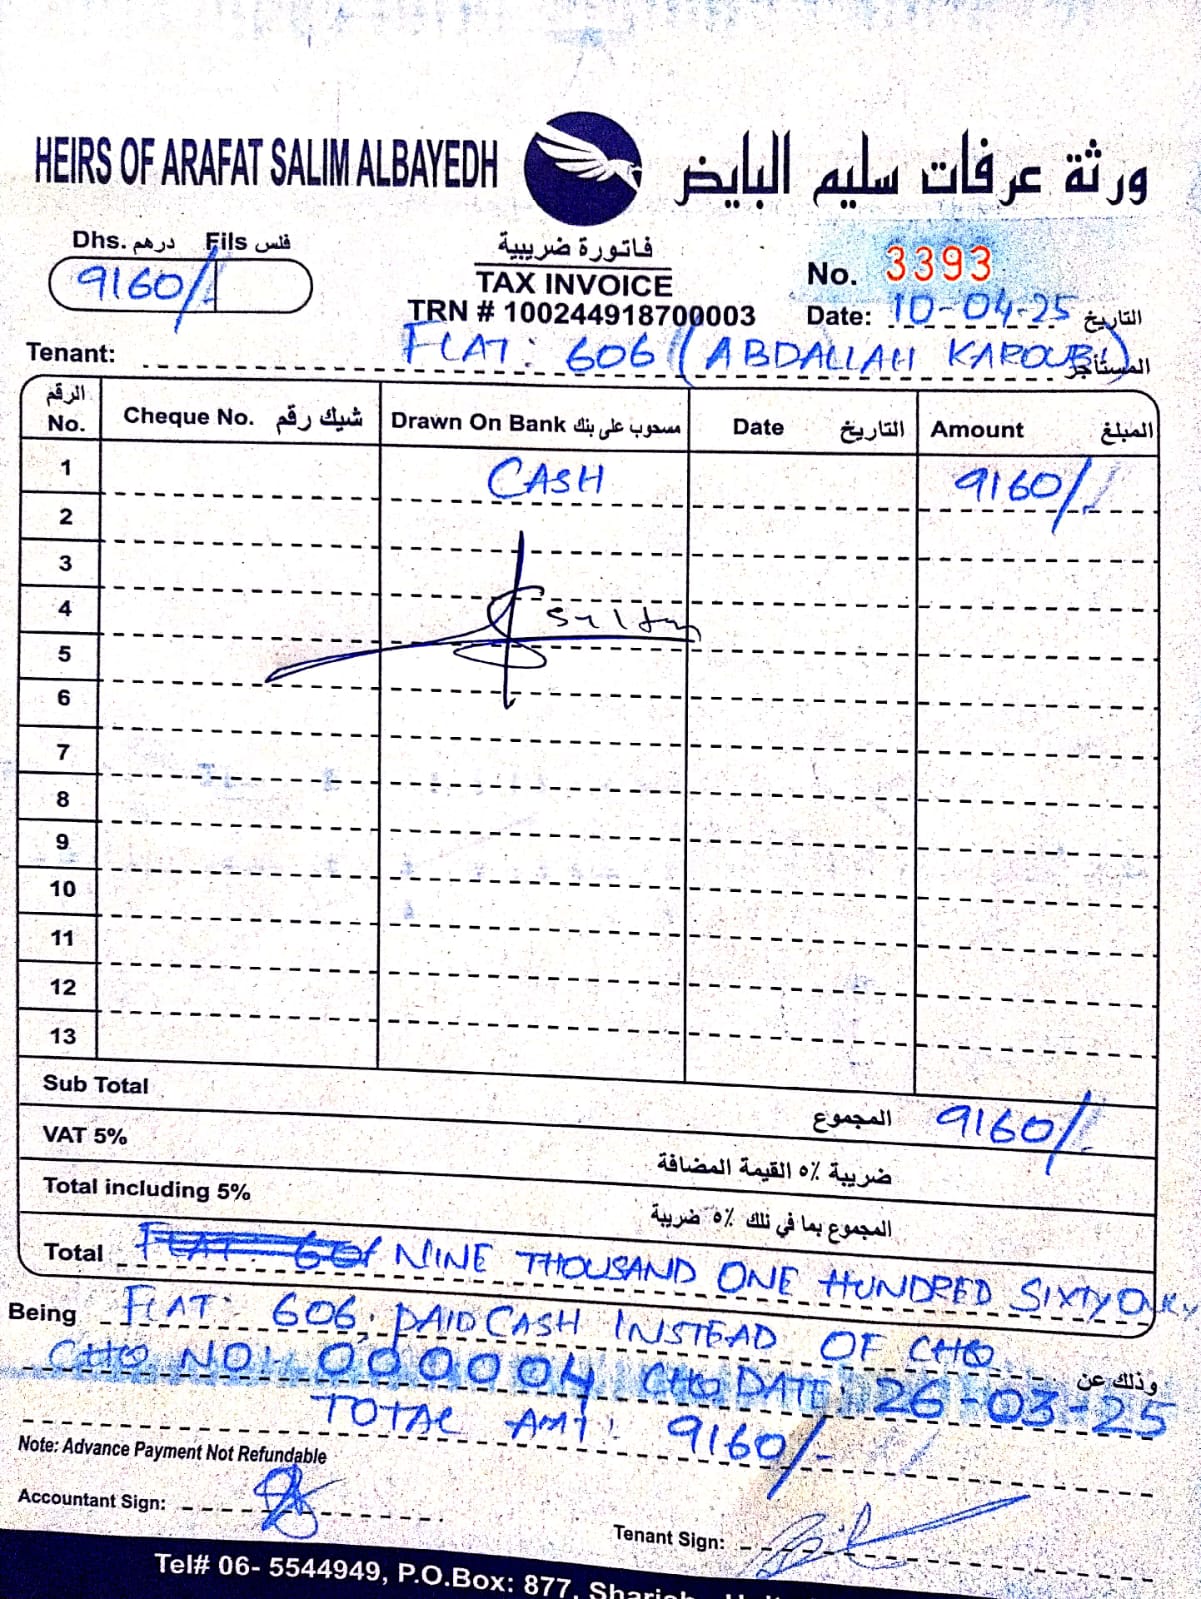 HEIRS OF ARAFAT SALIM ALBAYEDH ورثة عرفات سليم البايض
Dhs. درهم Fils فلس
9160/-
فاتورة ضريبية
TAX INVOICE
TRN # 100244918700003
No. 3393
Date: 10-04-25 التاريخ
Tenant: FLAT: 606 (ABDALLAH KAROUB) المستأجر
الرقم No. Cheque No. شيك رقم Drawn On Bank مسحوب على بنك Date التاريخ Amount المبلغ
1 CASH 9160/-
2
3
4 Sultan
5
6
7
8
9
10
11
12
13
Sub Total المجموع 9160/-
VAT 5% ضريبة ٥٪ القيمة المضافة
Total including 5% المجموع بما في ذلك ٥٪ ضريبة
Total NINE THOUSAND ONE HUNDRED SIXTY ONLY
Being FLAT: 606, PAID CASH INSTEAD OF CHQ وذلك عن
CHQ NO:- 000004 CHQ DATE: 26-03-25
TOTAL AMT:- 9160/-
Note: Advance Payment Not Refundable
Accountant Sign:
Tenant Sign:
Tel# 06- 5544949, P.O.Box: 877,